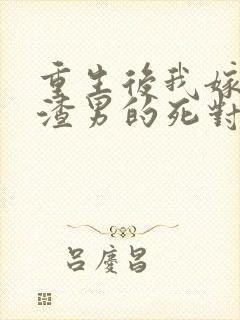 重生後我嫁
渣男的死對
呂慶昌